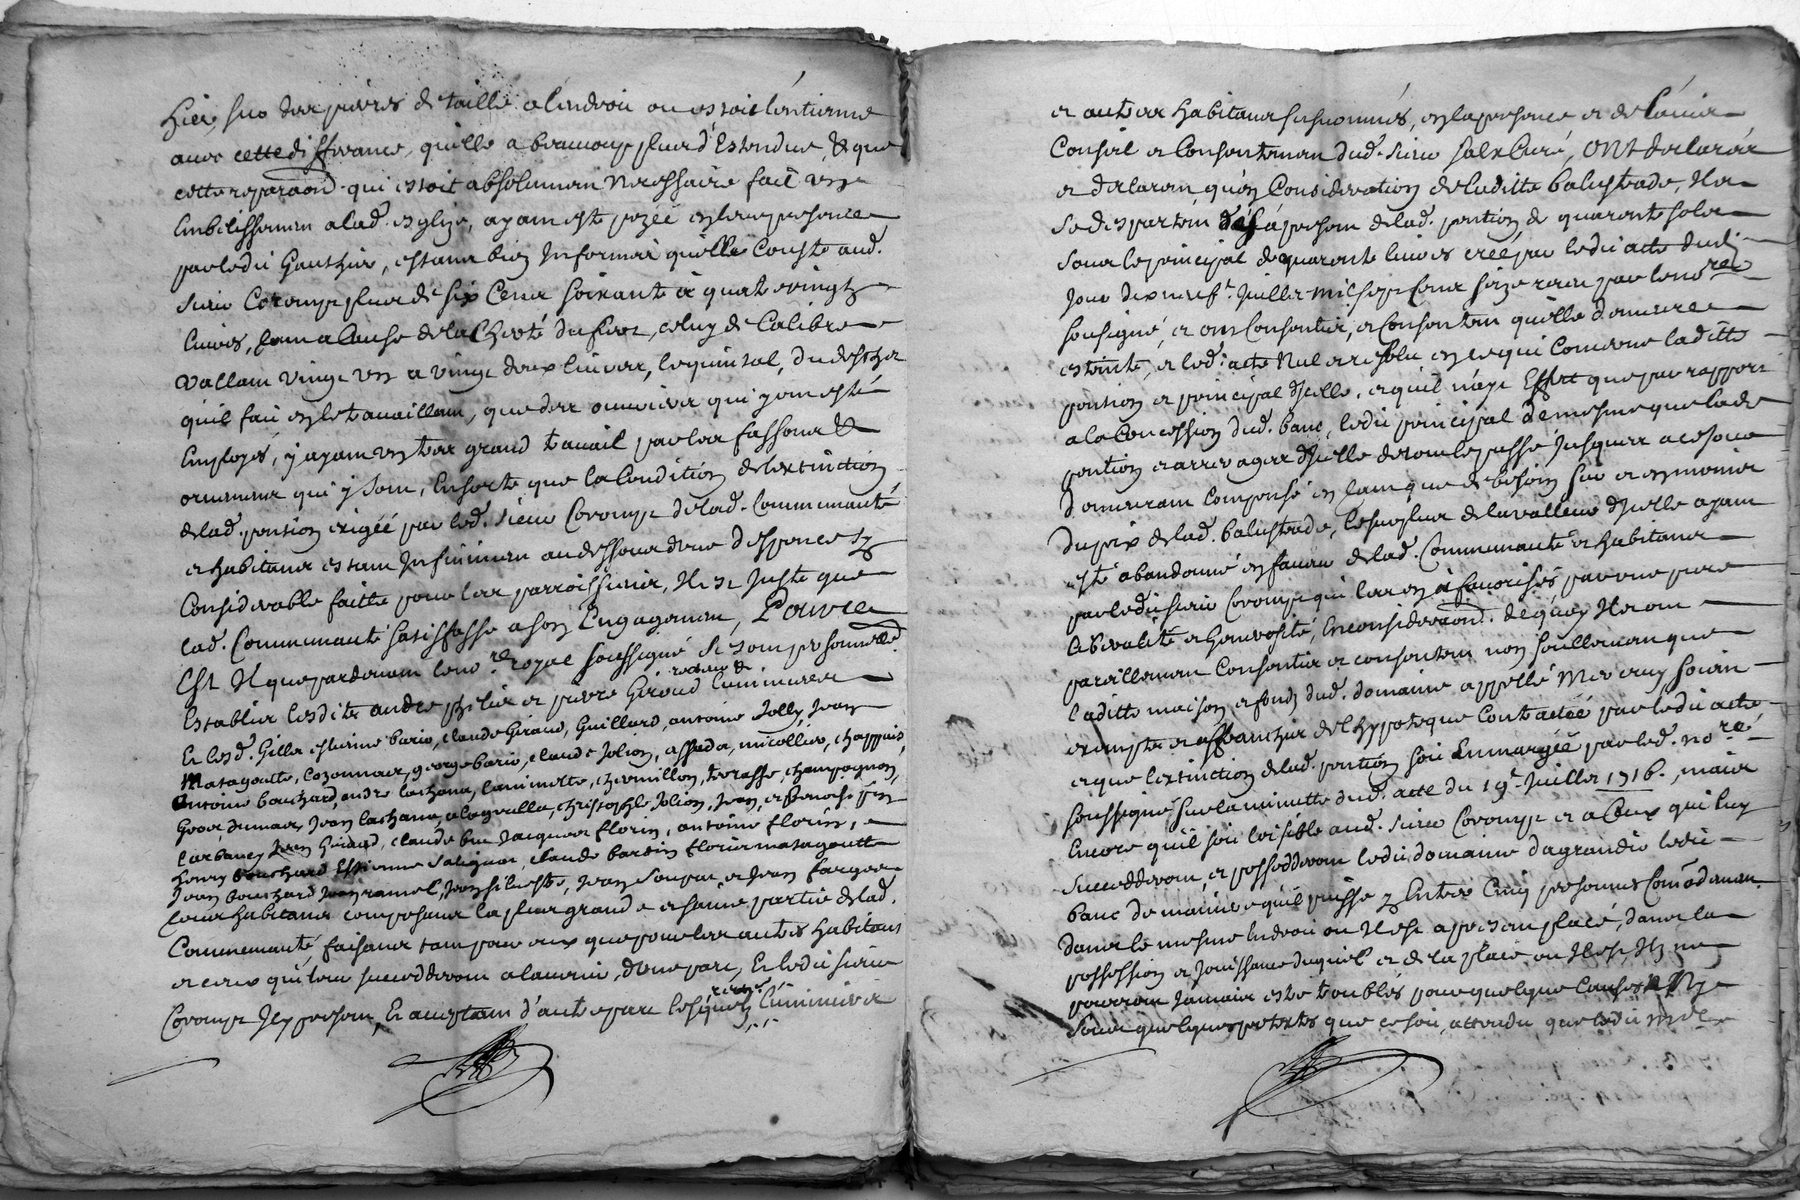 hier, sur des pierres de taille a lendroit ou estoit lentienne
avec cette differance, quelle a beaucoup plus d'Estendue, & que
cette reparaõn qui estoit absolumen necessaire fait un
Embelissemen a lad. esglize, ayant esté pozée en leur presence
par ledit Gauthier, estant bien Informés quelle Couste aud.
sieur Coromp plus de six Cens soixante et quatrevingt
livres, tant a Cause de la Cherté du fert, celuy de Calibre
vallant vingt un a vingt deux livres, lequintal, du deschet
quil fait en le travaillant, que des ouvriers qui y ont esté
Employés, y ayant un tres grand travail par les fassons &
ornemens qui y sont, Ensorte que la Condition de lextinction
de lad. pention exigée par led. sieur Coromp de lad. Communauté
et habitans estant Infinimen au dessous d'une despence sy
Considerable faitte pour les parroissiens, Il est Juste que
lad. Communauté satisfasse a son Engagemen, Pour ce
Est Il que pardevant le no.re royal soussigné se sont personnellem.
Establis lesdits andre et pierre Giroud luminiers
recteurs &
Et lesd. Gilles estienne bario, claude Giraud, Guillard, antoine Jolly, Jean
Matagoutte, Cozonnas, george bario, claude Jolion, micollier, chappuis,
antoine bouchard, andre lachana, laurimette, chermillon, terrasse, champagnon,
Jean lachana, christophle Jolion, Jean, et benoist
Jean Giraud, claude Jacques florin, antoine florin,
henry bouchard Estienne claude bardin florin matagoutte
Jean bouchard Jean ramel, Jean silvestre, Jean et Jean farges
tous habitans composans la plus grande et saine partie de lad.
Communauté, faisans tant pour eux que pour les autres habitans
et ceux qui leur succedderont a lavenir, d'une part, Et ledit sieur
Coromp Icy present, Et acceptant d'autre part lesquels luminiers
recteurs
et autres habitans susnommés, en la presence et de lavis
Conseil et Consentemen dud. sieur curé, ONt declarés
et declarent qu'en Consideration de laditte balustrade, Ils
se despartent des a present de lad. pention de quarente sols
sous le principal de quarente livres creé par ledit acte dudit
Jour dix neuf.e Juillet mil sept cens seize receu par le no.re
sousigné, et ont Consentis, et Consentent quelle demeure
esteinte, et led. acte Nul et resolu en ce qui Concerne laditte
pention et principal d'Icelle, et quil n'aye Effet que par rapport
a la Concession dud. banc, ledit principal de mesme que lad.
pention et arrerages d'Icelle de tout le passé Jusques a ce Jour
demeurant Compensé en tant que de besoin soit et en moins
du prix de lad. balustrade, le surplus de la valleur d'Icelle ayant
esté abandonné en faveur de lad. Communauté et habitans
par ledit sieur Coromp qui les en a favorisés par une pure
liberalité et generosité, En consideraõn de quoy Ils ont
pareillemen Consentis et consentent non seullemen que
laditte maison et fonds dud. domaine appellé soient
exempts et affranchis de l'hypoteque Contractée par ledit acte
et que lextinction de lad. pention soit Enmargée par led. no.re
soussigné sur la minutte dud. acte du 19.e Juillet 1716., mais
Encore qu'il soit loisible aud. sieur Coromp et a Ceux qui luy
succedderont, et possedderont ledit domaine d'agrandir ledit
banc de maniere qu'il puisse y Entrer Cinq personnes Comodemen
dans le mesme Endroit ou Il est a present placé, dans la
possession et Jouissance duquel et de la place ou Il est, Ils ne
pourront Jamais estre troublés pour quelque Cause Ny
sous quelques pretextes que ce soit, attendu que ledit